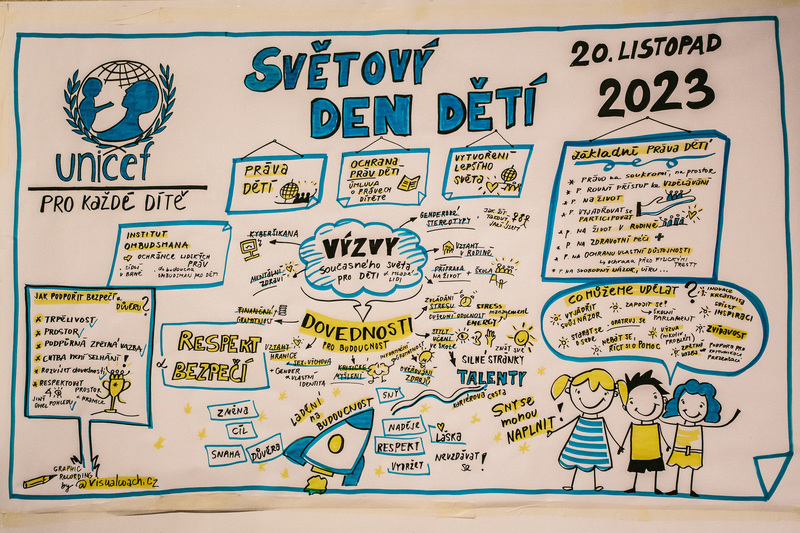 SVĚTOVÝ
DEN DĚTÍ
20. LISTOPAD
2023
unicef
PRO KAŽDÉ DÍTĚ
PRÁVA
DĚTÍ
OCHRANA
PRÁV DĚTÍ
ÚMLUVA
O PRÁVECH
DÍTĚTE
VYTVOŘENÍ
LEPŠÍHO
SVĚTA
Základní PRÁVA DĚTÍ
* PRÁVO na SOUKROMÍ, na prostor
* P. ROVNÝ PŘÍSTUP ke VZDĚLÁVÁNÍ
* P. na ŽIVOT
* P. VYJADŘOVAT se
PARTICIPOVAT
* P. NA ŽIVOT V RODINĚ
* P. NA ZDRAVOTNÍ PÉČI
* P. NA OCHRANU VLASTNÍ DŮSTOJNOSTI
OCHRANA PŘED FYZICKÝMI
TRESTY
* P. NA SVOBODNÝ NÁZOR, VÍRU...
INSTITUT
OMBUDSMANA
OCHRÁNCE LIDSKÝCH
PRÁV
KYBERŠIKANA
MENTÁLNÍ
ZDRAVÍ
VÝZVY
současného světa
PRO DĚTI a MLADÉ
LIDI
GENDEROVÉ
STEREOTYPY
VZTAHY
V RODINĚ
PŘÍPRAVA
NA ŽIVOT
ŠKOLA
JAK PODPOŘIT BEZPEČÍ a
DŮVĚRU?
* TRPĚLIVOST
* PROSTOR
* PODPŮRNÁ ZPĚTNÁ VAZBA
* CHYBA NENÍ SELHÁNÍ!
* ROZVÍJET dovednosti
* RESPEKTOVAT
PROSTOR
a HRANICE
JINÝ
ÚHEL POHLEDU
RESPEKT
a BEZPEČÍ
FINANČNÍ
GRAMOTNOST
DOVEDNOSTI
PRO BUDOUCNOST
VZTAHY
HRANICE
GENDER
VLASTNÍ
IDENTITA
KRITICKÉ
MYŠLENÍ
OVĚŘOVÁNÍ
ZDROJŮ
ZVLÁDÁNÍ
STRESU
DUŠEVNÍ ODOLNOST
STRESS
management
ENERGY
STYLY
UČENÍ
VE ŠKOLE
ZNÁT SVÉ
SILNÉ STRÁNKY
TALENTY
KARIÉROVÁ CESTA
SNY
CO MŮŽEME UDĚLAT?
VYJÁDŘIT
SVŮJ NÁZOR
ZAPOJIT SE!
ŠKOLNÍ
PARLAMENT
INOVACE
KREATIVITA
SDÍLET
INSPIRACI
STARAT SE
O SEBE
OPATRUJ SE
NEBÁT SE
ŘÍCT SI O POMOC
VÝZVA
(NIKOLIV
PROBLÉM)
ZVÍDAVOST
ZPĚTNÁ
VAZBA
PODPORA PRO
KOMUNIKACI
PREZENTACI
ZMĚNA
CÍL
SNAHA
DŮVĚRA
LADĚNÍ
na
BUDOUCNOST
NADĚJE
RESPEKT
VYDRŽET
LÁSKA
NEVZDÁVAT
SE!
SNY SE
mohou
NAPLNIT!
GRAPHIC
RECORDING
by @visualcoach.cz